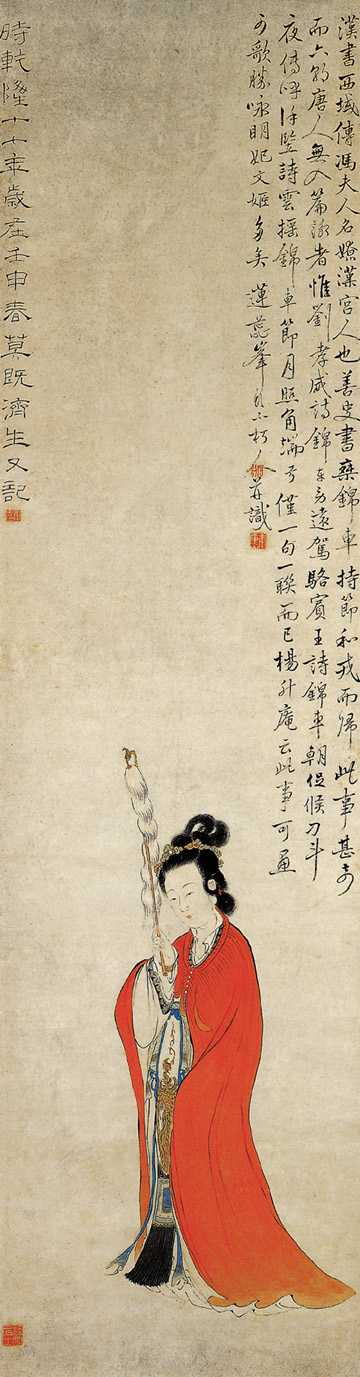 漢書西域傳馮夫人名嫽漢宮人也善史書乘錦車持節和戎而歸此事甚奇
而六朝唐人無入篇詠者惟劉孝威詩錦車勞遠駕駱賓王詩錦車朝促候刀斗
夜傳呼徐堅詩雲搖錦車節月照角端弓僅一句一聯而已楊升庵云此事可畫
可歌勝咏明妃文姬多矣 蓮蕊峯頭不朽人并識
時乾隆十七年歲在壬申春莫既濟生又記